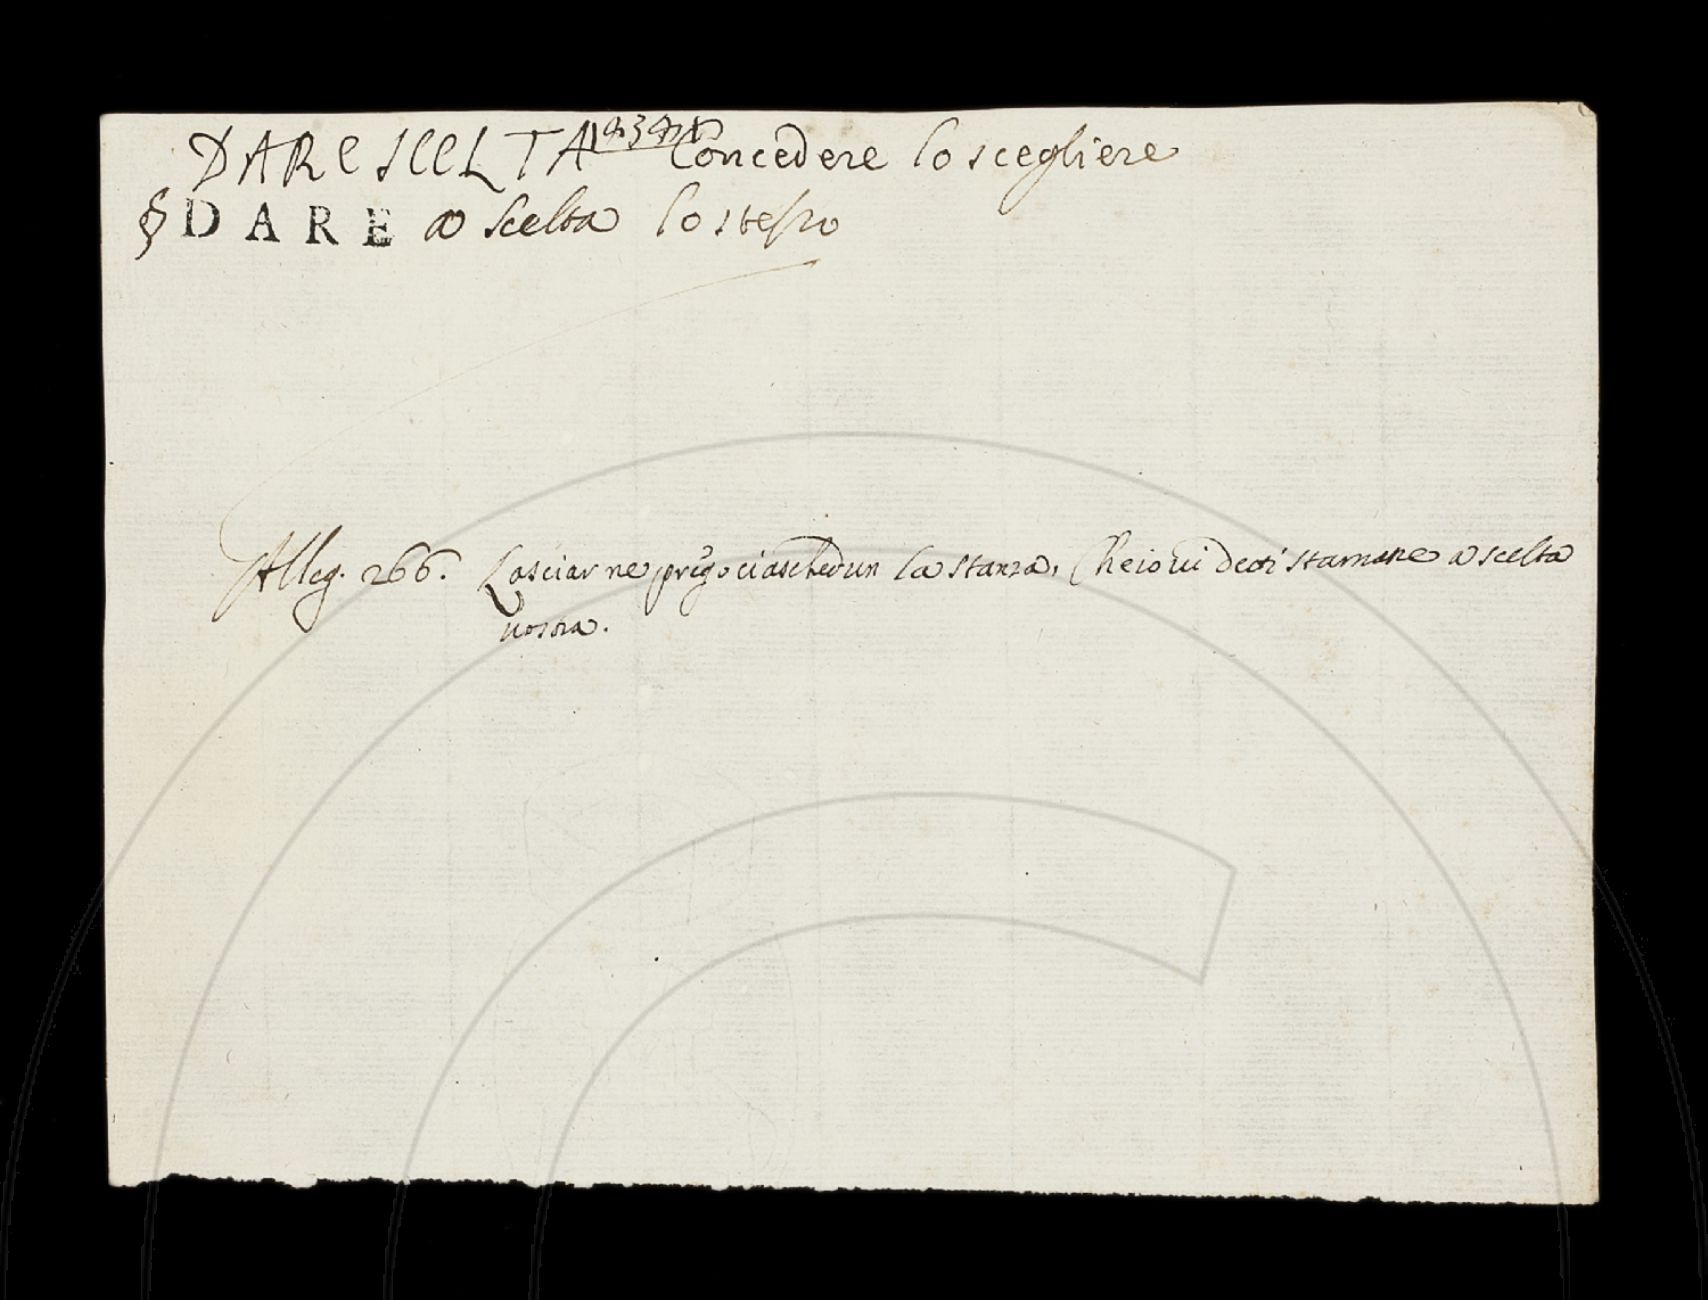 DARE SCELTA Concedere lo scegliere
§ DARE a scelta lo stesso
Alleg. 266. Lasciarne prego ciaschedun la stanza, Che io vi dedi stamane a scelta
vostra.